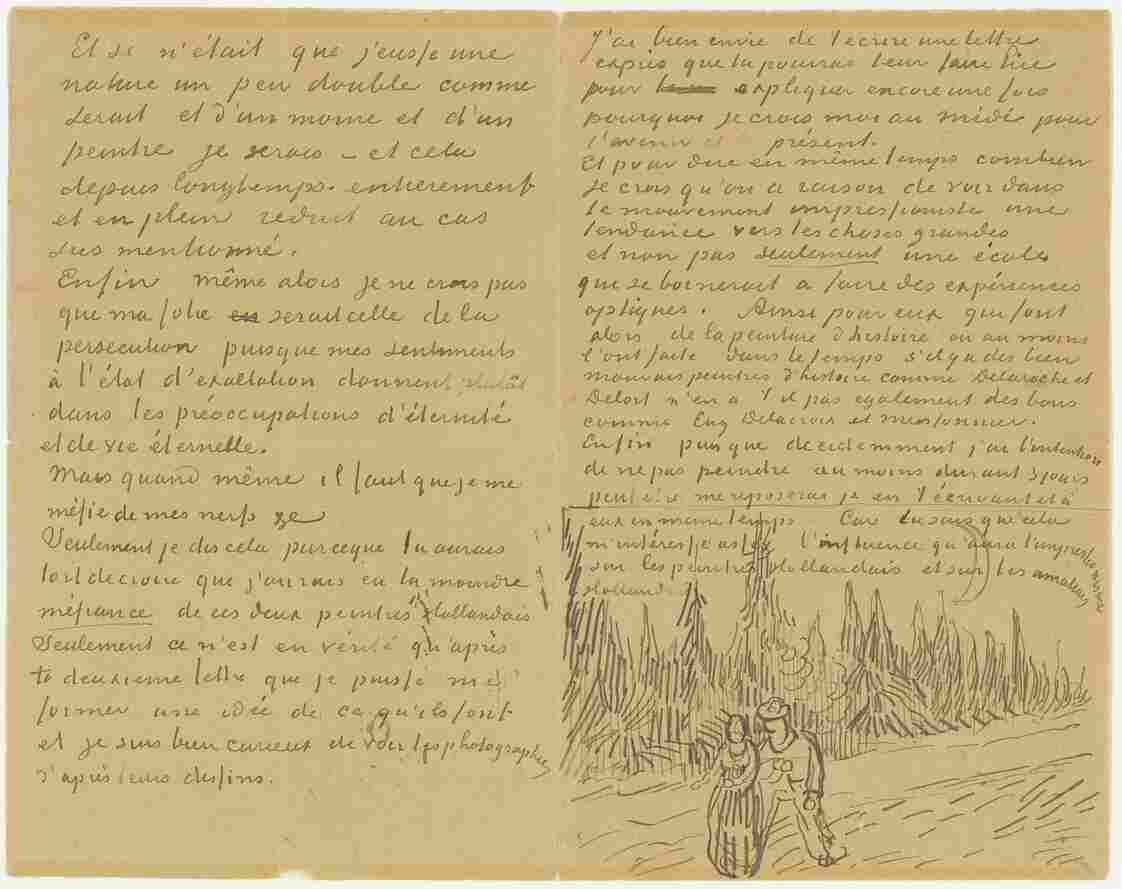 Et si n'était que j'eusse une
nature un peu double comme
serait et d'un moine et d'un
peintre je serais – et cela
depuis longtemps. entierement
et en plein reduit au cas
sus mentionné.
Enfin même alors je ne crois pas
que ma folie en serait celle de la
persecution puisque mes sentiments
à l'état d'exaltation donnent plutôt
dans les préoccupations d'éternité
et de vie éternelle.
Mais quand même il faut que je me
méfie de mes nerfs ze
Seulement je dis cela parceque tu aurais
tort de croire que j'aurais eu la moindre
méfiance de ces deux peintres Hollandais
Seulement ce n'est en vérité qu'après
ta deuxieme lettre que je puisse me
former une idée de ce qu'ils font
et je suis bien curieux de voir les photographies
d'après leurs dessins.
J'ai bien envie de t'ecrire une lettre
exprès que tu pourras leur faire lire
pour expliquer encore une fois
pourquoi je crois moi au midi pour
l'avenir et présent.
Et pour dire en même temps combien
je crois qu'on a raison de voir dans
le mouvement impressioniste une
tendance vers les choses grandes
et non pas seulement une école
qui se bornerait a faire des expériences
optiques. Ainsi pour eux qui font
alors de la peinture d'histoire ou au moins
l'ont faite dans le temps s'il y a des bien
mauvais peintres d'histoire comme Delaroche et
Delort n'en a t'il pas egalement des bons
comme Eug Delacroix et Meissonnier.
Enfin puisque decidemment j'ai l'intention
de ne pas peindre au moins durant 3 jours
peut être me reposerai je en t'écrivant et à
eux en meme temps. Car tu sais que cela
m'intéresse assez l'influence qu'aura l'impressionisme
sur les peintres Hollandais et sur les amateurs
Holland.